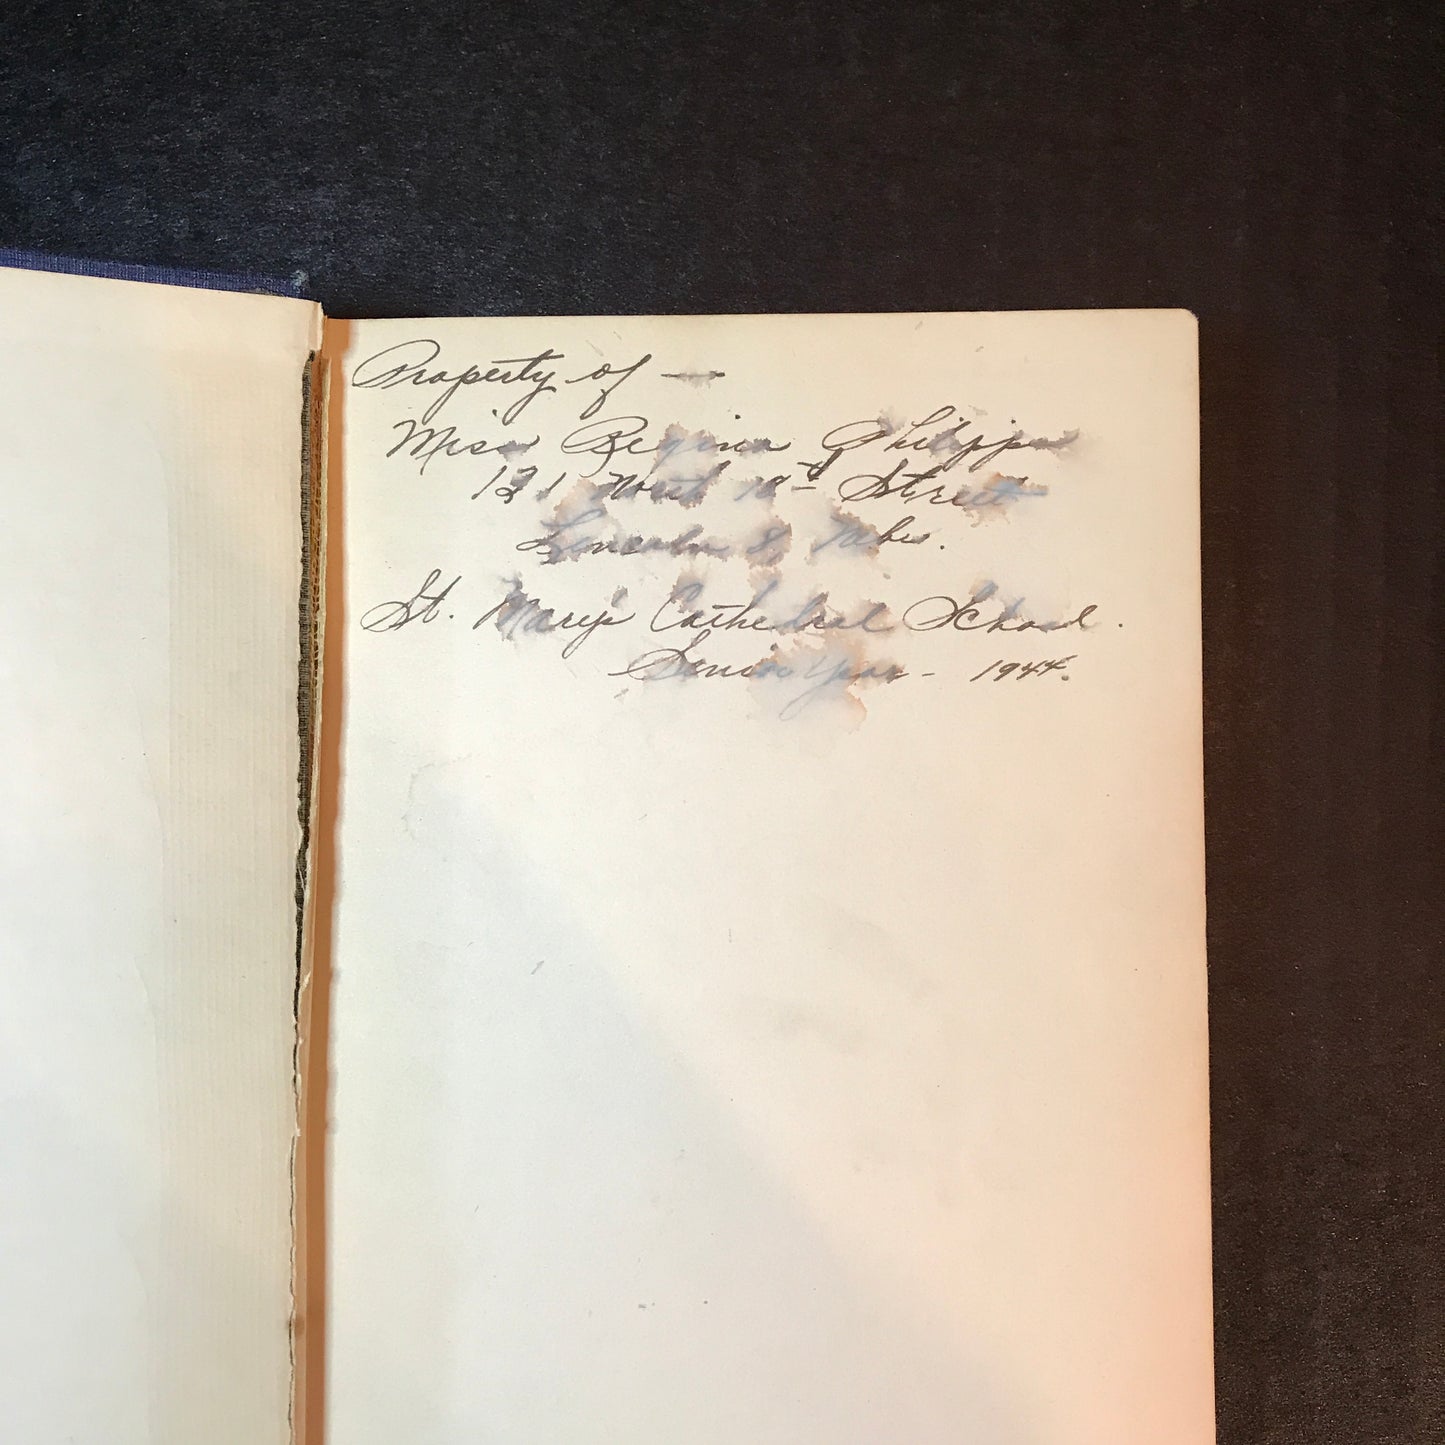 Property of —
Miss Regina Philippi
121 North 18th Street
Lincoln 8, Nebr.
St. Mary's Cathedral School.
Senior Year - 1944.